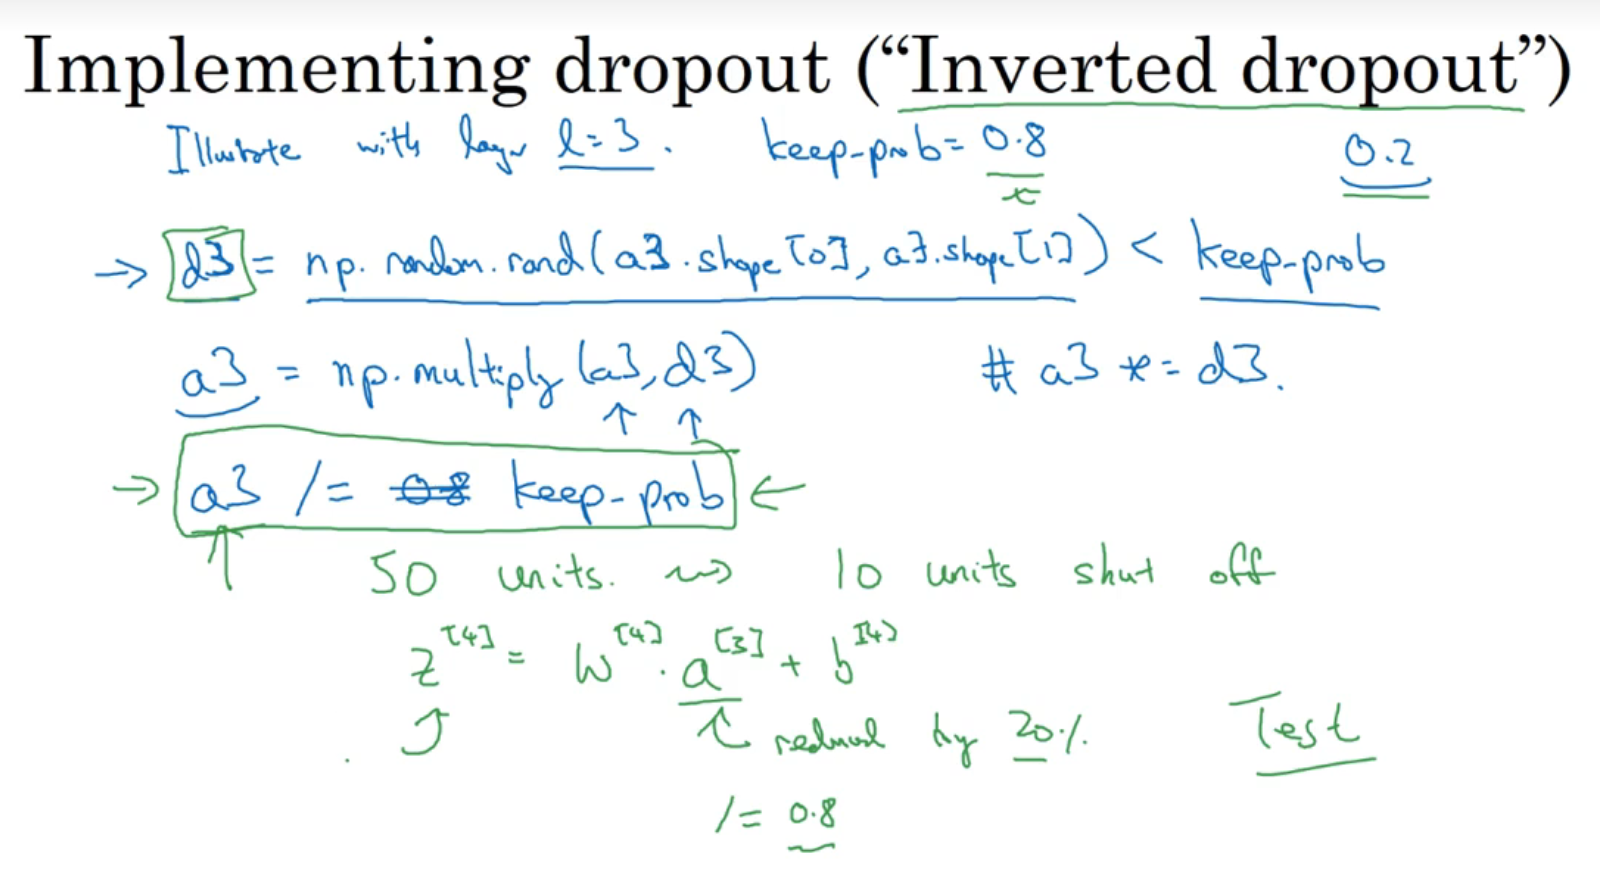 Implementing dropout (“Inverted dropout”)
Illustrate with layer l=3. keep-prob= 0.8 0.2
→ d3 = np.random.rand(a3.shape[0], a3.shape[1]) < keep-prob
a3 = np.multiply(a3, d3) # a3 *= d3.
→ a3 /= 0.8 keep-prob ←
50 units. ⇝ 10 units shut off
z^[4] = W^[4] · a^[3] + b^[4]
reduced by 20% Test
/= 0.8